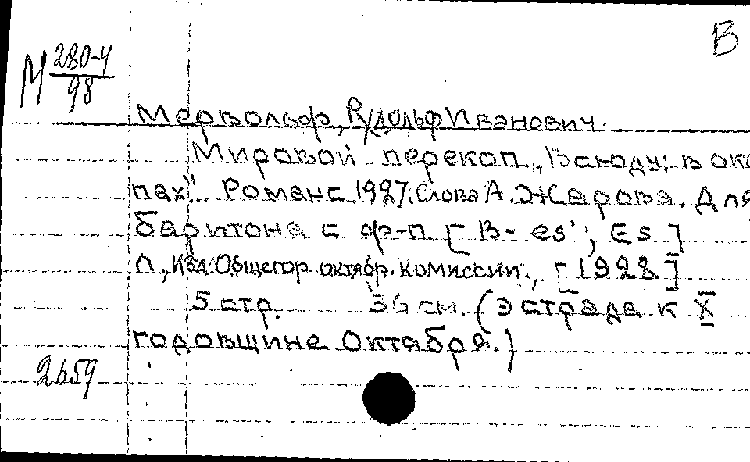 В
М 280-4
98
Мервольф, Рудольф Иванович.
Мировой перекоп „Всюду; в око
пах". Романс 1927. Слова А. Жарова. Для
баритона с ф-п [В- es'; Es]
Л., Изд. Общегор. октябр. комиссии., [1928]
5 стр. 36 см. (Эстрада к X
годовщине Октября.)
2659